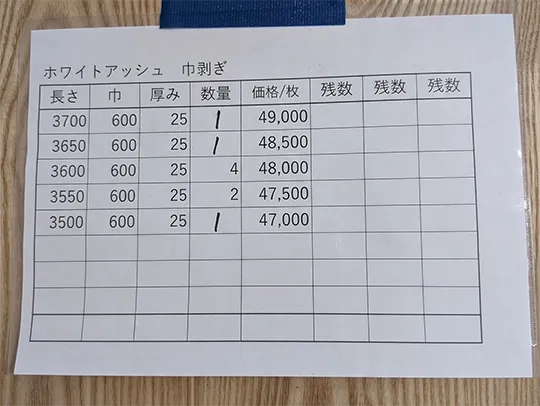 ホワイトアッシュ 巾剥ぎ
長さ 巾 厚み 数量 価格/枚 残数 残数 残数
3700 600 25 1 49,000
3650 600 25 1 48,500
3600 600 25 4 48,000
3550 600 25 2 47,500
3500 600 25 1 47,000